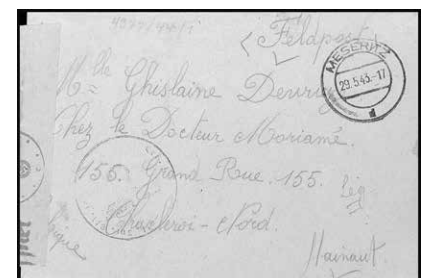 4377/44/1
Feldpost
MESERITZ
29.5.43.-17
d
Mlle Ghislaine
Chez le Docteur Moriamé.
155. Grand Rue. 155.
Charleroi - Nord.
Hainaut